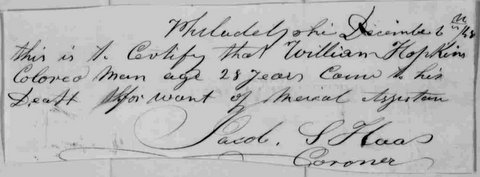 Philadelphia December 6th /48
this is to Certify that William Hopkins
Colored Man age 28 years Came to his
Death for want of Meical Assistan
Jacob. S Haas
Coroner